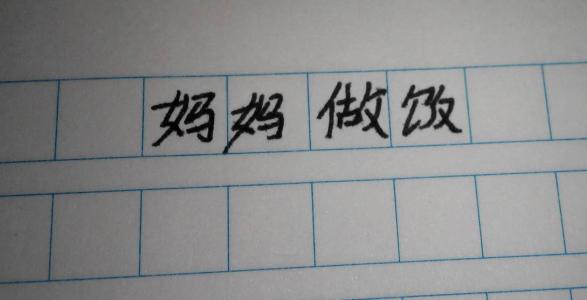 妈妈做饭